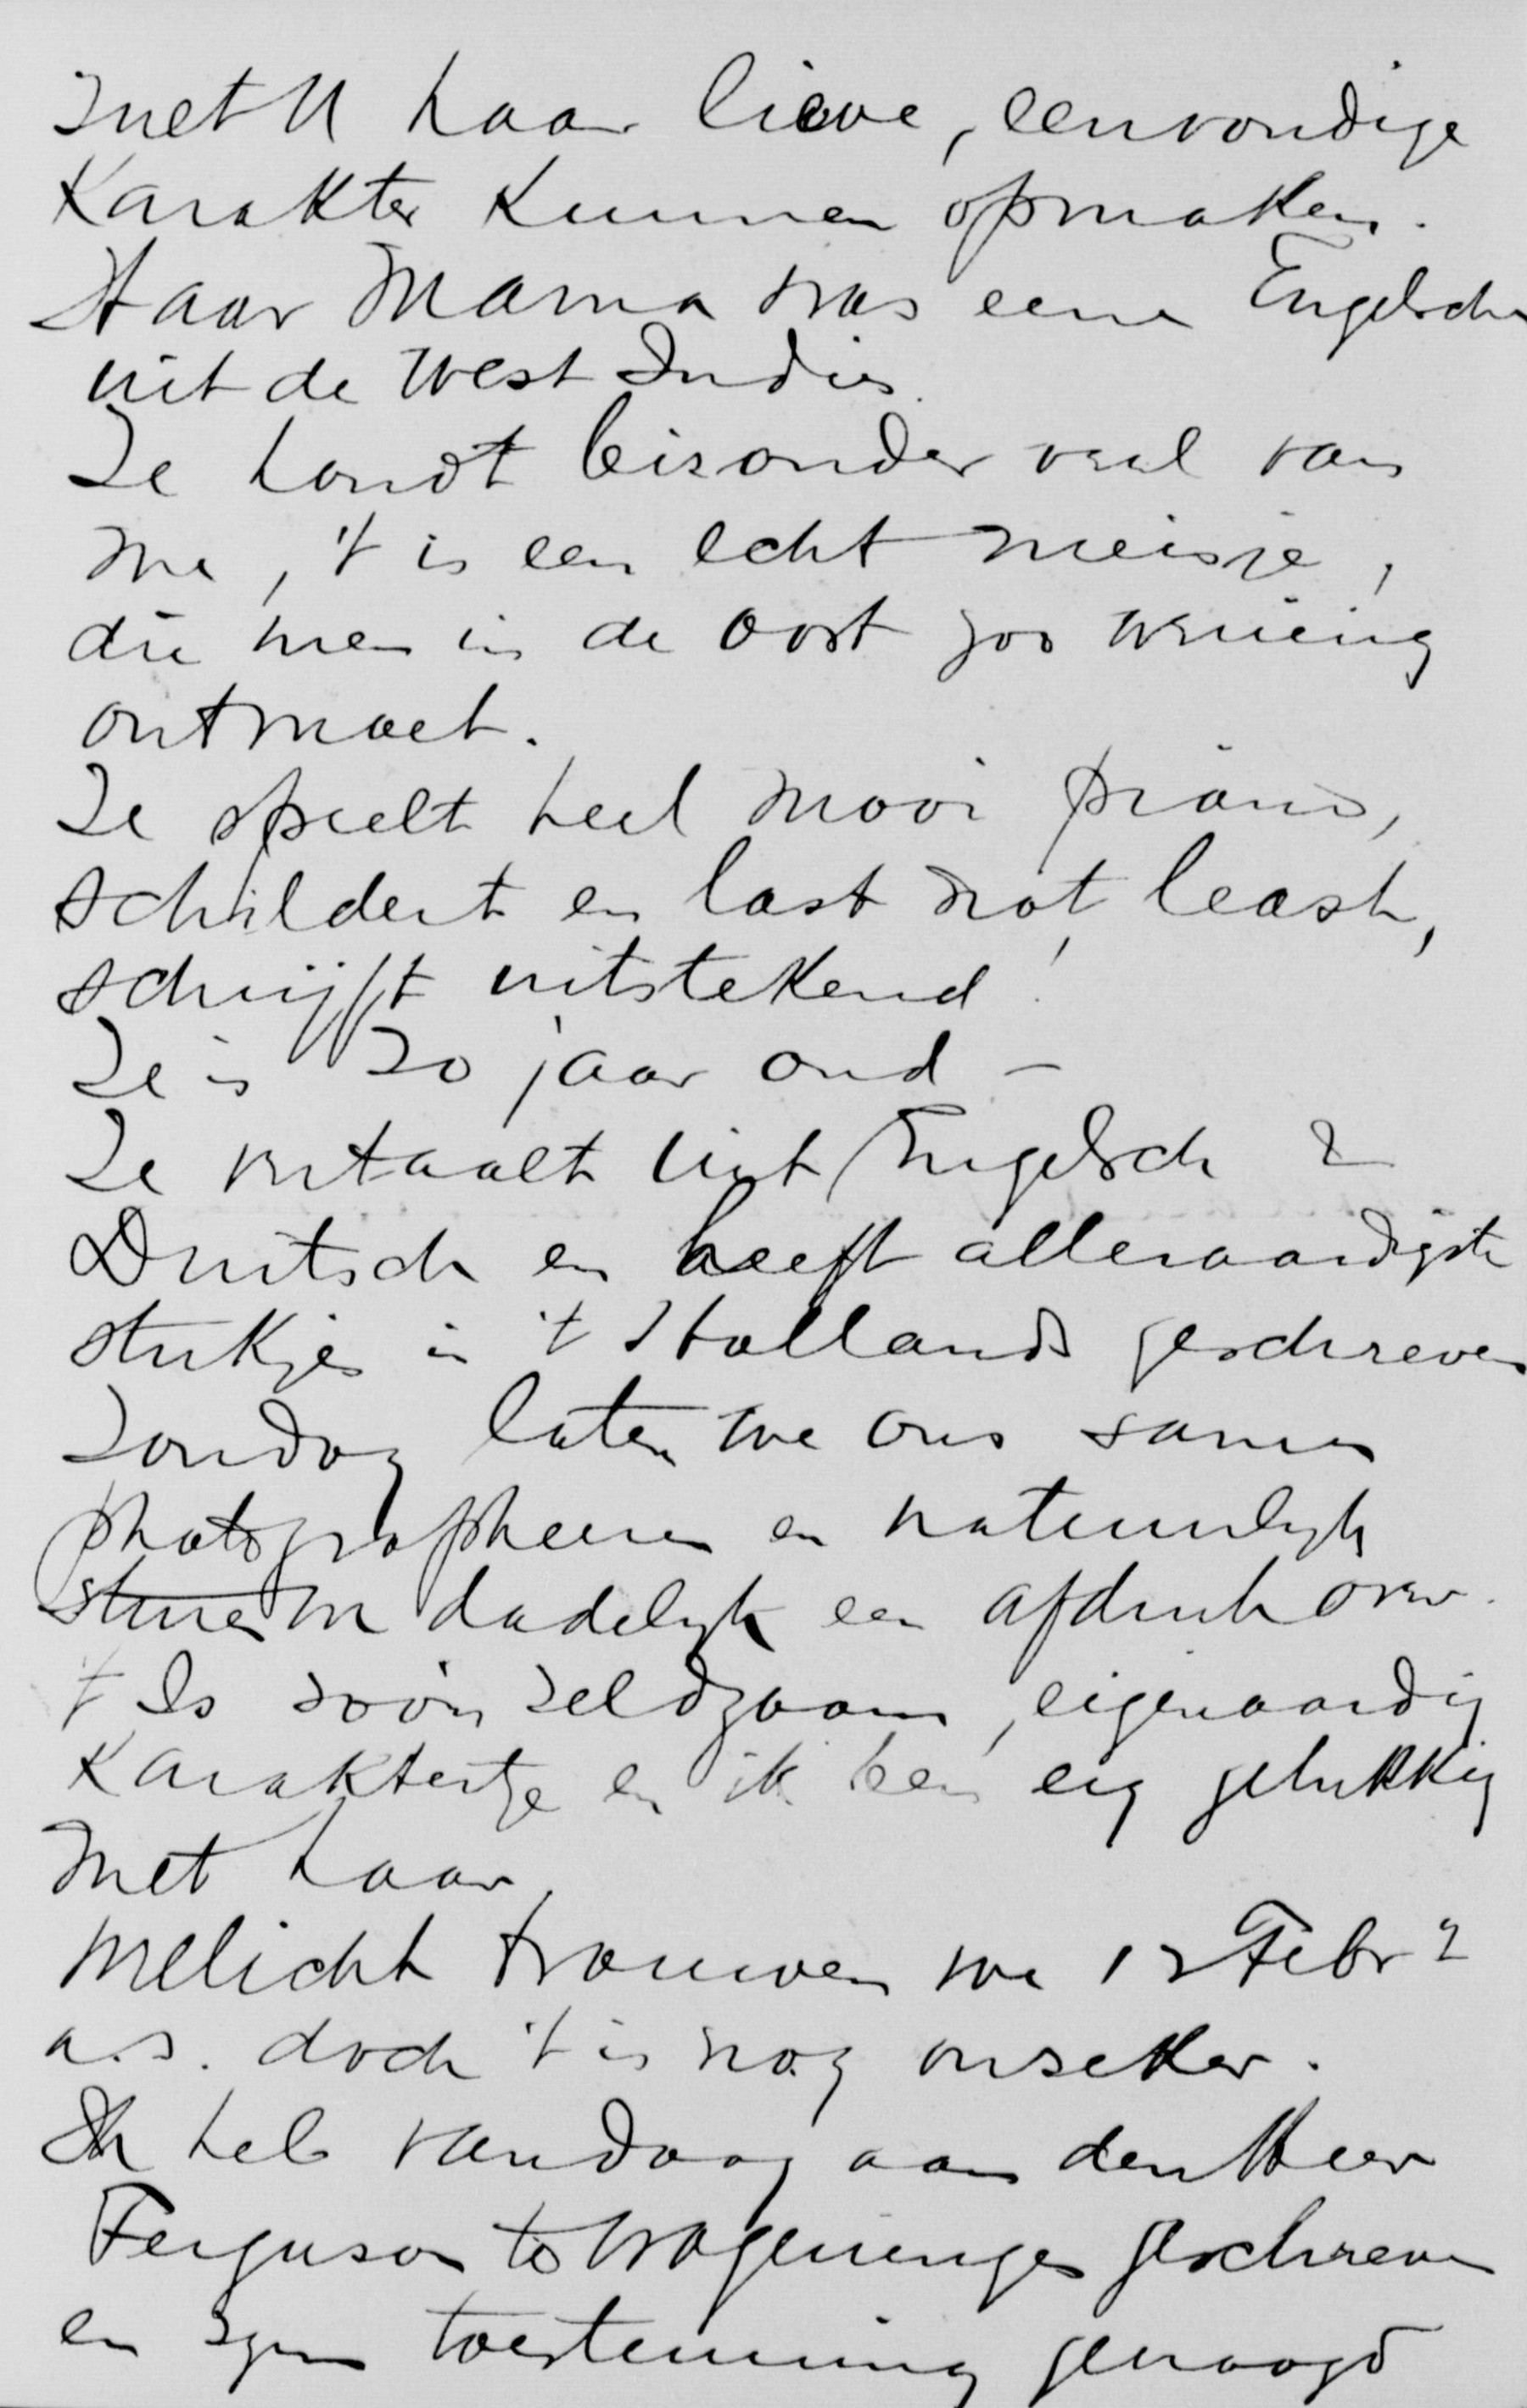 moet U haar lieve, eenvoudige
Karakter Kunnen opmaken.
Haar Mama was eene Engelsche
uit de West Indies.
Ze houdt bizonder veel van
me, 't is een echt meisje,
die men in de Oost zoo weinig
ontmoet.
Ze speelt heel mooi piano,
schildert en last not least,
schrijft uitstekend!
Ze is 20 jaar oud –
Ze vertaalt uit Engelsch &
Duitsch en heeft alleraardigste
stukjes in 't Hollands geschreven
Zondag laten we ons samen
photographeeren en natuurlijk
sturen we dadelijk een afdruk over.
't Is zoo'n zeldzaam, eigenaardig
Karaktertje en ik ben erg gelukkig
met haar.
Wellicht trouwen we 12 Febr
a.s. doch 't is nog onzeker.
Ik heb vandaag aan den Heer
Ferguson te Wageningen geschreven
en zijn toestemming gevraagd